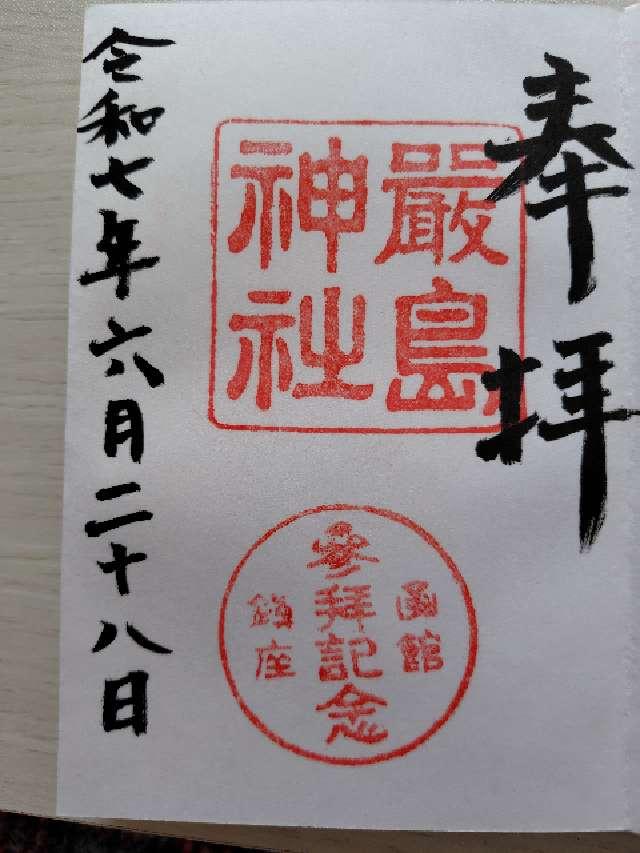 奉拝
厳島
神社
函館
参拝記念
鎮座
令和七年六月二十八日